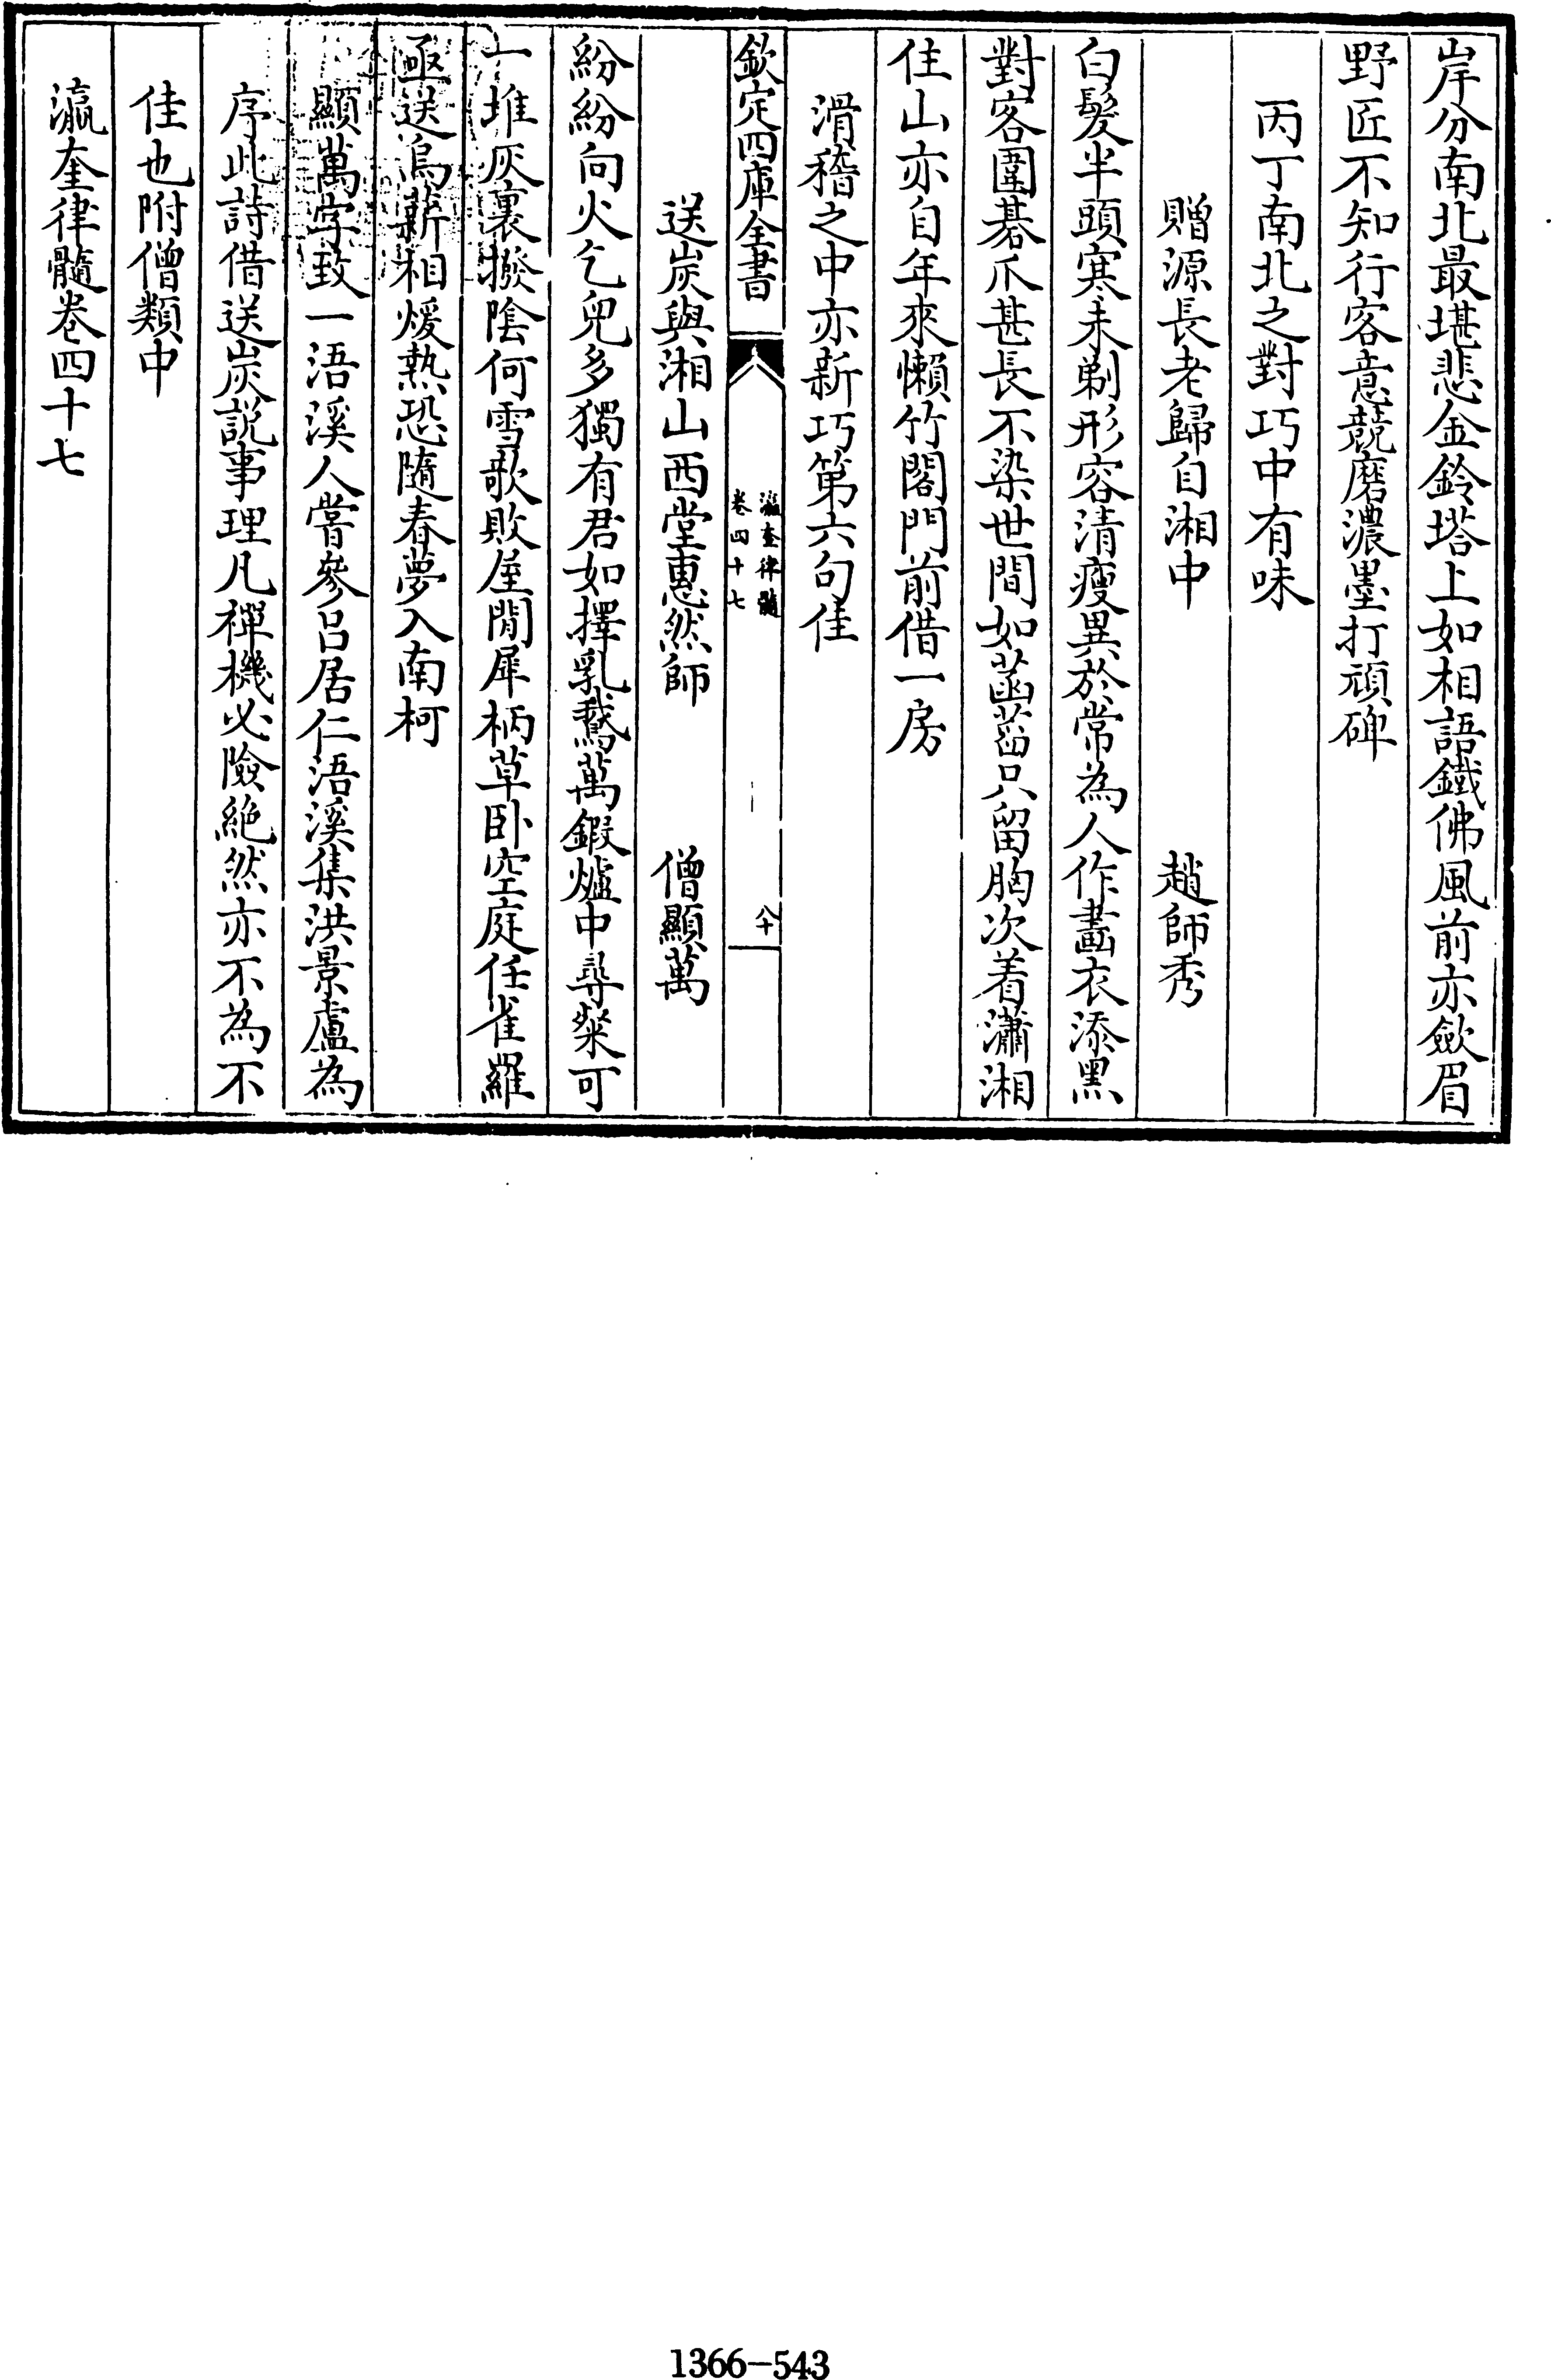 岸分南北最堪悲金鈴塔上如相語鐵佛風前亦斂眉
野匠不知行客意競磨濃墨打頑碑
丙丁南北之對巧中有味
贈源長老歸自湘中　趙師秀
白髮半頭寒未剃形容清瘦異於常為人作畵衣添黑
對客圍碁爪甚長不染世間如菡萏只留胸次着瀟湘
住山亦自年來懶竹閣門前借一房
滑稽之中亦新巧第六句佳
欽定四庫全書　瀛奎律髓　卷四十七　八十
送炭與湘山西堂惠然師　僧顯萬
紛紛向火乞兒多獨有君如擇乳鵞萬鍜爐中尋粲可
一堆灰裏撥陰何雪歌敗屋閒犀柄草卧空庭任雀羅
亟送烏薪相煖熱恐隨春夢入南柯
顯萬字致一浯溪人嘗參呂居仁浯溪集洪景盧為
序此詩借送炭説事理凡禪機必險絶然亦不為不
佳也附僧類中
瀛奎律髓卷四十七
1366-543